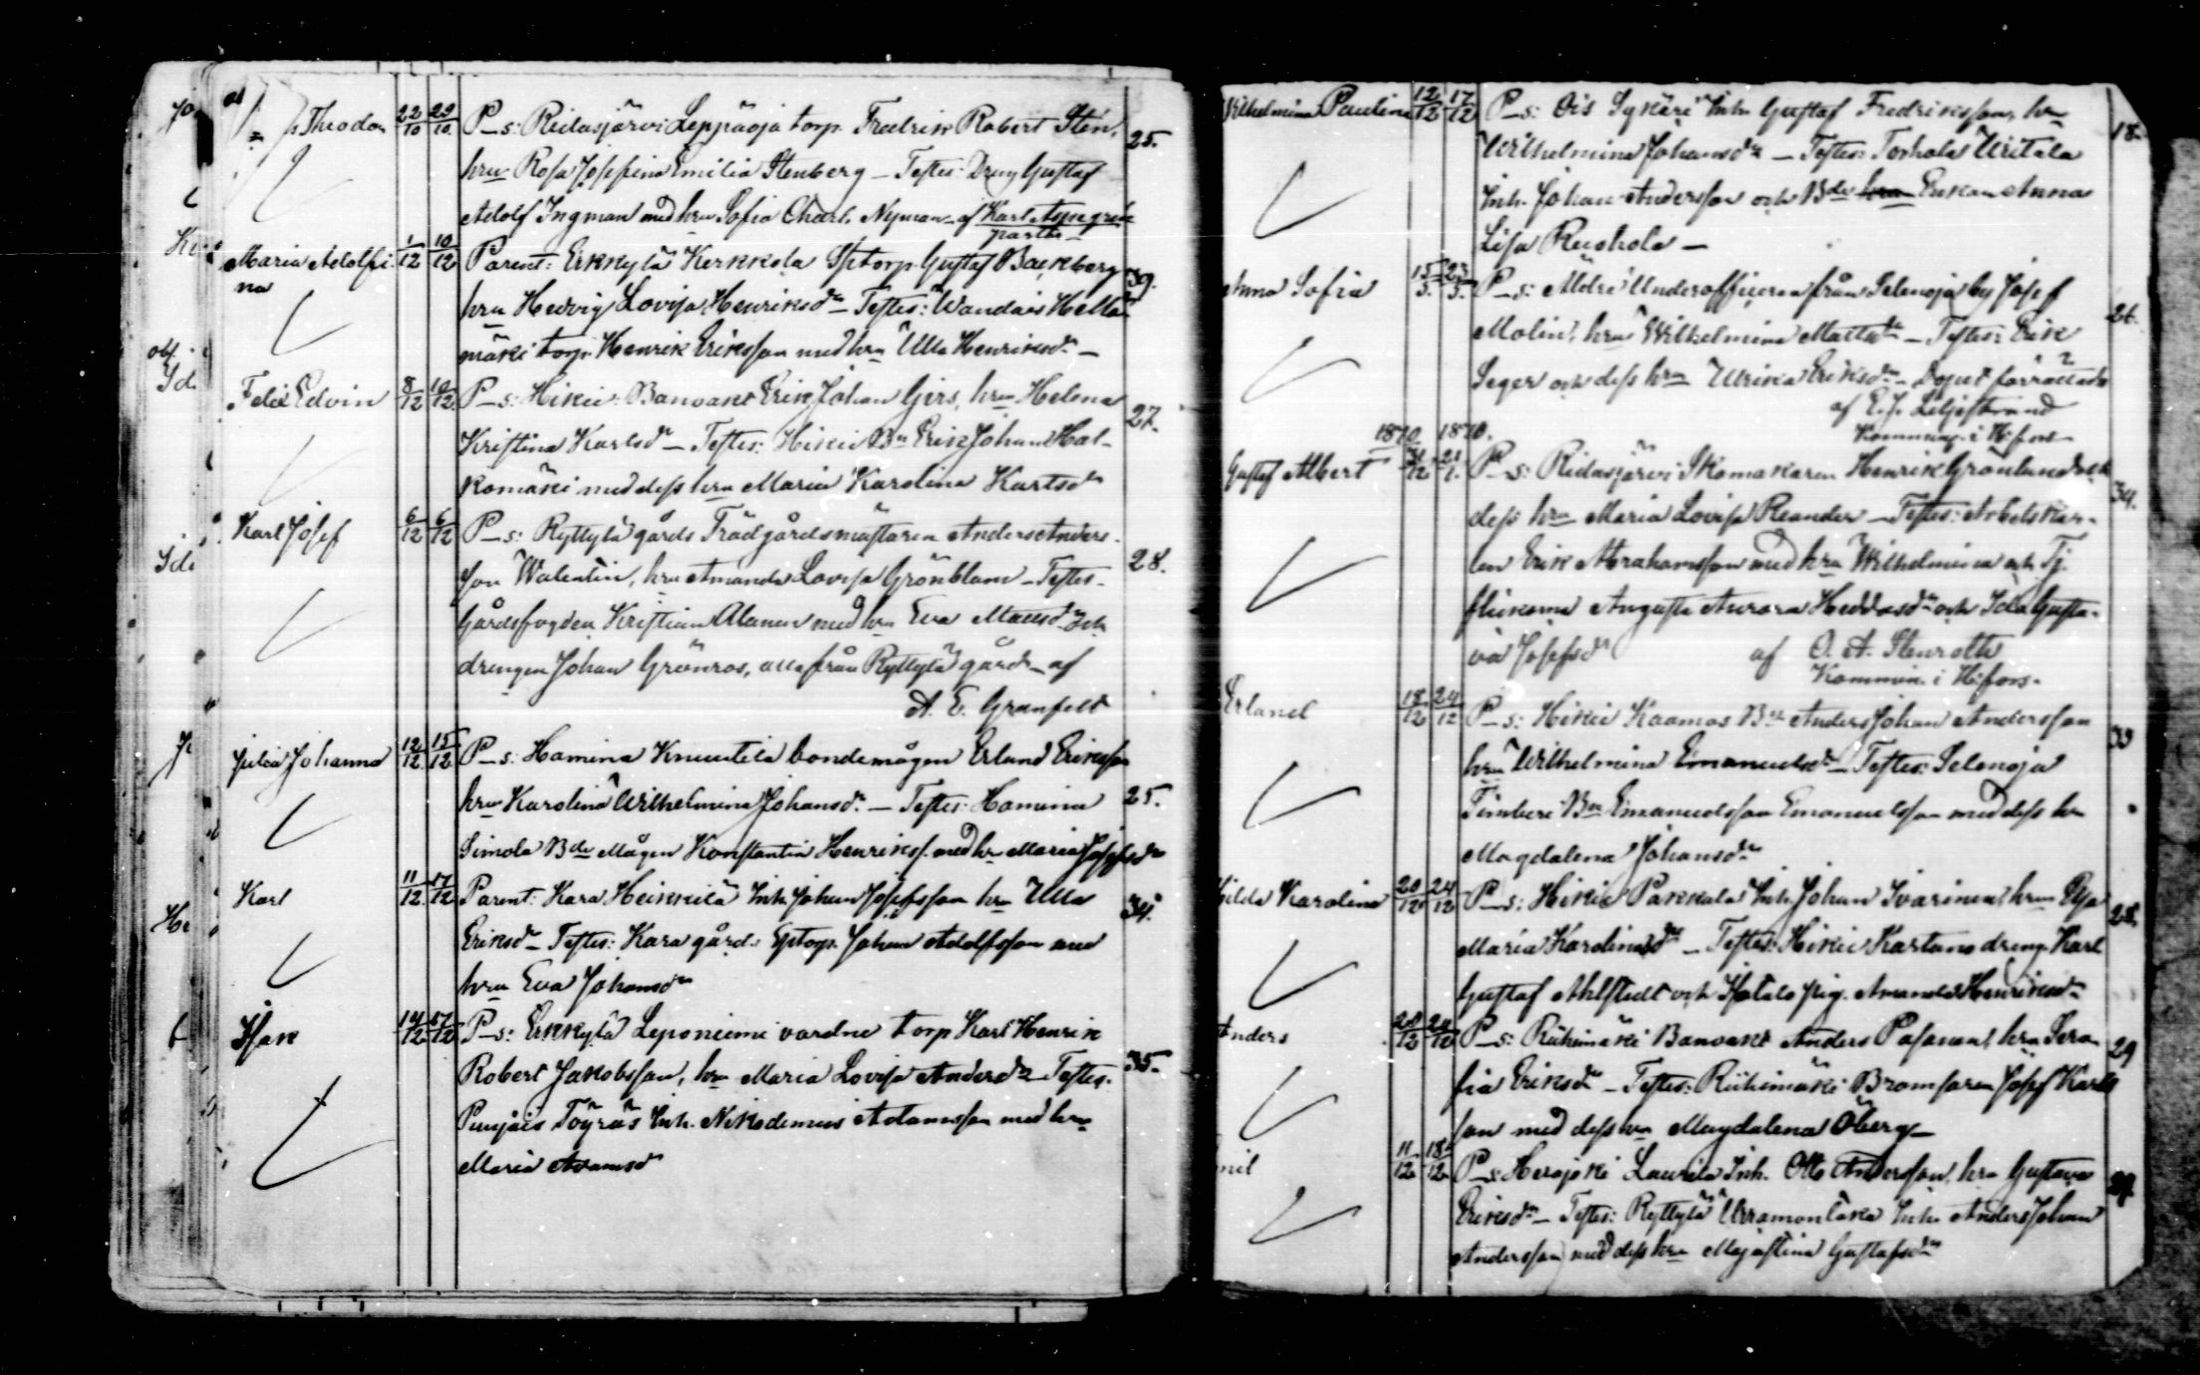 Theodor 22/10 29/10 P_s: Ridasjärvi Leppäoja torp. Fredrik Robert Sten,
hru Rosa Josefina Emilia Stenberg – Testes: Dreng Gustaf 25.
Adolf Ingman med hru Sofia Charl. Nyman – af Karl Aspegren
Maria Adolfi- 1/12 10/12 Parent: Erkkylä Kerkkola Sptorp. Gustaf Backberg 39.
na hru Hedvig Lovisa Henriksdr – Testes: Wandais Hella-
mäki torp. Henrik Eriksson med hru Ulla Henriksdr –
Felix Edvin 8/12 10/12 P_s: Hikiä: Banvakt Erik Johan Girs, hru Helena 27.
Kristina Karlsdr – Testes: Hikiä Bn Erik Johan Hal-
komäki med dess hru Maria Karolina Karlsdr
Karl Josef 6/12 6/12 P_s: Ryttylä gårds Trädgårdsmästaren Anders Anders-
son Walentin, hru Amanda Lovisa Grönblom – Testes- 28.
Gårdsfogden Kristian Alanen med hru Eva Mattsdr och
drengen Johan Grönroos, alla från Ryttylä gård – af
A. E. Granfelt
Julia Johanna 12/12 15/12 P_s: Hamina Knuutila bondemågen Erland Eriksson
hru Karolina Wilhelmina Johansdr. – Testes: Hamina 25.
Simola Bde Mågen Konstantin Henrikss. med hru Maria Josefsdr
Karl 11/12 17/12 Parent: Kara Heikkilä Inh. Johan Josefsson hru Ulla 34.
Eriksdr – Testes: Kara gårds Sptorp. Johan Adolfsson med
hru Eva Johansdr
Isak 14/12 17/12 P_s: Erkkylä Leponiemi vardne torp Karl Henrik
Robert Jakobsson, hru Maria Lovisa Andersdr – Testes. 35.
Punjais Töyräs Inh. Nikodemus Adamsson med hru
Maria Adamsdr
Wilhelmina Paulina 12/12 17/12 P_s: Ois Sykäri Inh. Gustaf Fredriksson, hru 18.
Wilhelmina Johansdr – Testes: Torhola Uritala
Inh. Johan Andersson och Bde hru Enkan Anna
Lisa Ruohola –
Anna Sofia 15/3 23/3 P_s: Äldre Underofficeren från Selenoja by Josef 26.
Molin, hru Wilhelmina Mattsdr – Testes: Erik
Seger och dess hru Ulrika Eriksdr – Dopet förrättadt
af E. J. Liljestrand
Komminist. i H:fors
1870 1870.
Gustaf Albert P_s: Ridasjärvi Skomakaren Henrik Grönlund och 34.
dess hru Maria Lovisa Reander – Testes: Arbetskar-
len Erik Abrahamsson med hru Wilhelmina och Tj.
flickorna Augusta Aurora Heddasdr och Ida Gusta-
va Josefsdr af O. A. Stenroth
Kommin. i H:fors.
Erland 18/12 24/12 P_s: Hikiä Kaamos Bn Anders Johan Andersson 33
hru Wilhelmina Emanuelsdr – Testes: Selenoja
Timberi Bn Emanuelsson Emanuelsson med dess hru
Magdalena Johansdr
Hilda Karolina 20/12 24/12 P_s: Hikiä Pakkala Inh. Johan Ivarinen, hru Eva 28.
Maria Karolinasdr – Testes: Hikiä Kartano dreng Karl
Gustaf Ahlstedt och Isotalo pig. Amanda Henriksdr
Anders 20/12 24/12 P_s: Riihimäki Banvakt Anders Pasanen, hru Sera- 29
fia Eriksdr – Testes: Riihimäki Bromsaren Josef Karls-
son med dess hru Magdalena Öberg –
11/12 18/12 P_s: Herajoki Laurila Inh. Otto Andersson, hru Gustava 29.
Eriksdr – Testes: Ryttylä Uramontaka Inh. Anders Johan
Andersson med dess hru Majastina Gustafsdr